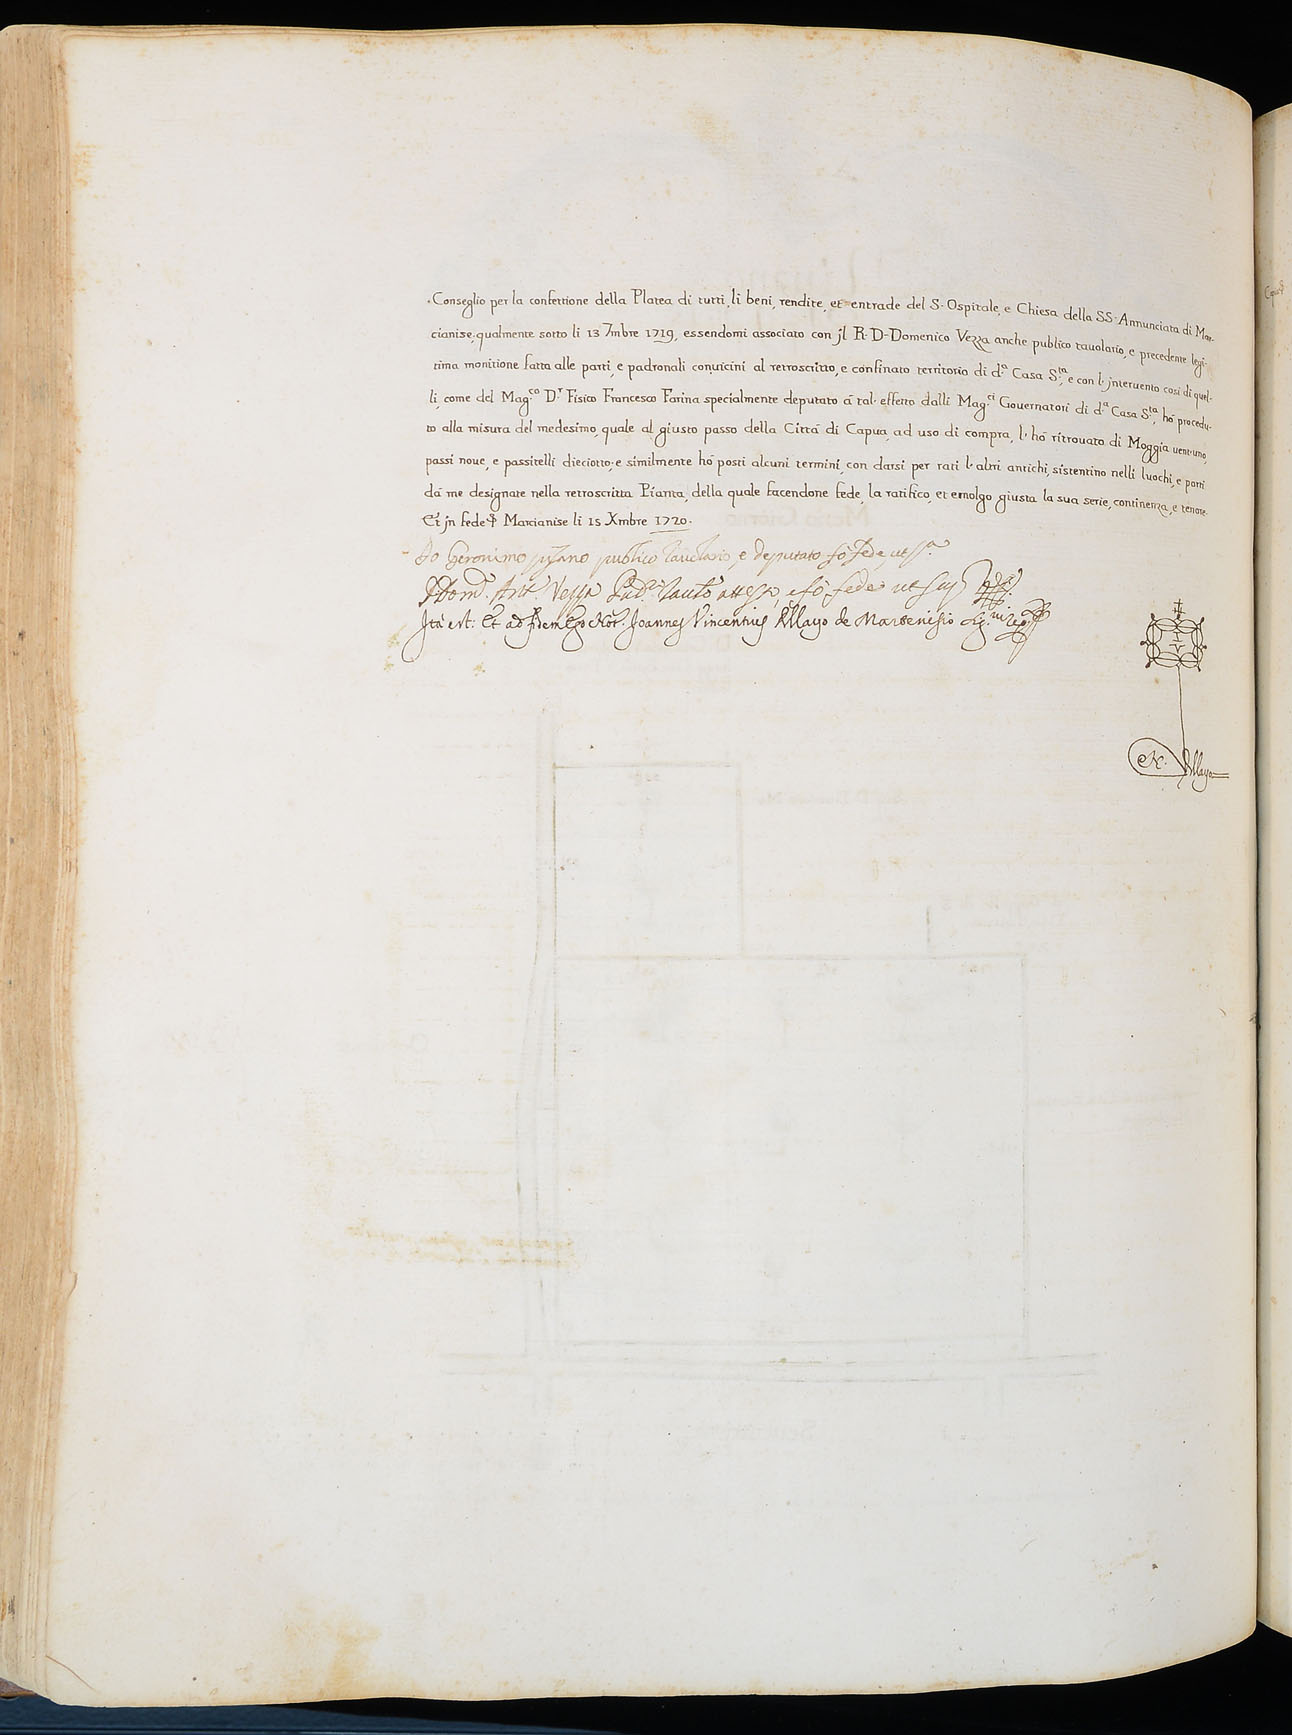 Conseglio per la confettione della Platea di tutti, li beni, rendite, et entrade del S. Ospitale, e Chiesa della SS. Annunciata di Mar-
cianise, qualmente sotto li 13 7mbre 1719, essendomi associato con jl R. D. Domenico Vezza anche publico tauolario, e precedente legi-
tima monitione fatta alle parti, e padronali conuicini al retroscritto, e confinato territorio di d.ª Casa S.ta, e con l' jnteruento così di quel-
li, come del Mag.co D.r Fisico Francesco Farina specialmente deputato á tal' effetto dalli Mag.ci Gouernatori di d.ª Casa S.ta, hó procedu-
to alla misura del medesimo, quale al giusto passo della Cittá di Capua, ad uso di compra, l' hó ritrouato di Moggia uent'uno,
passi noue, e passitelli dieciotto; e similmente hó posti alcuni termini, con darsi per rati l' altri antichi, sistentino nelli luochi, e parti
dá me designate nella retroscritta Pianta, della quale facendone fede, la ratifico, et emolgo giusta la sua serie, continenza, e tenore.
Et jn fede Marcianise li 15 Xmbre 1720.
Io Geronimo publico Tauolario, e deputato fó fede, ut s.ª
D. Dom. Ant. Vezza Pub. Tauo. attesto, e fó fede ut sup.
Ita est: Et ad fidem Ego Not. Joannes Vincentius Mayo de Marcenisio
N. Mayo